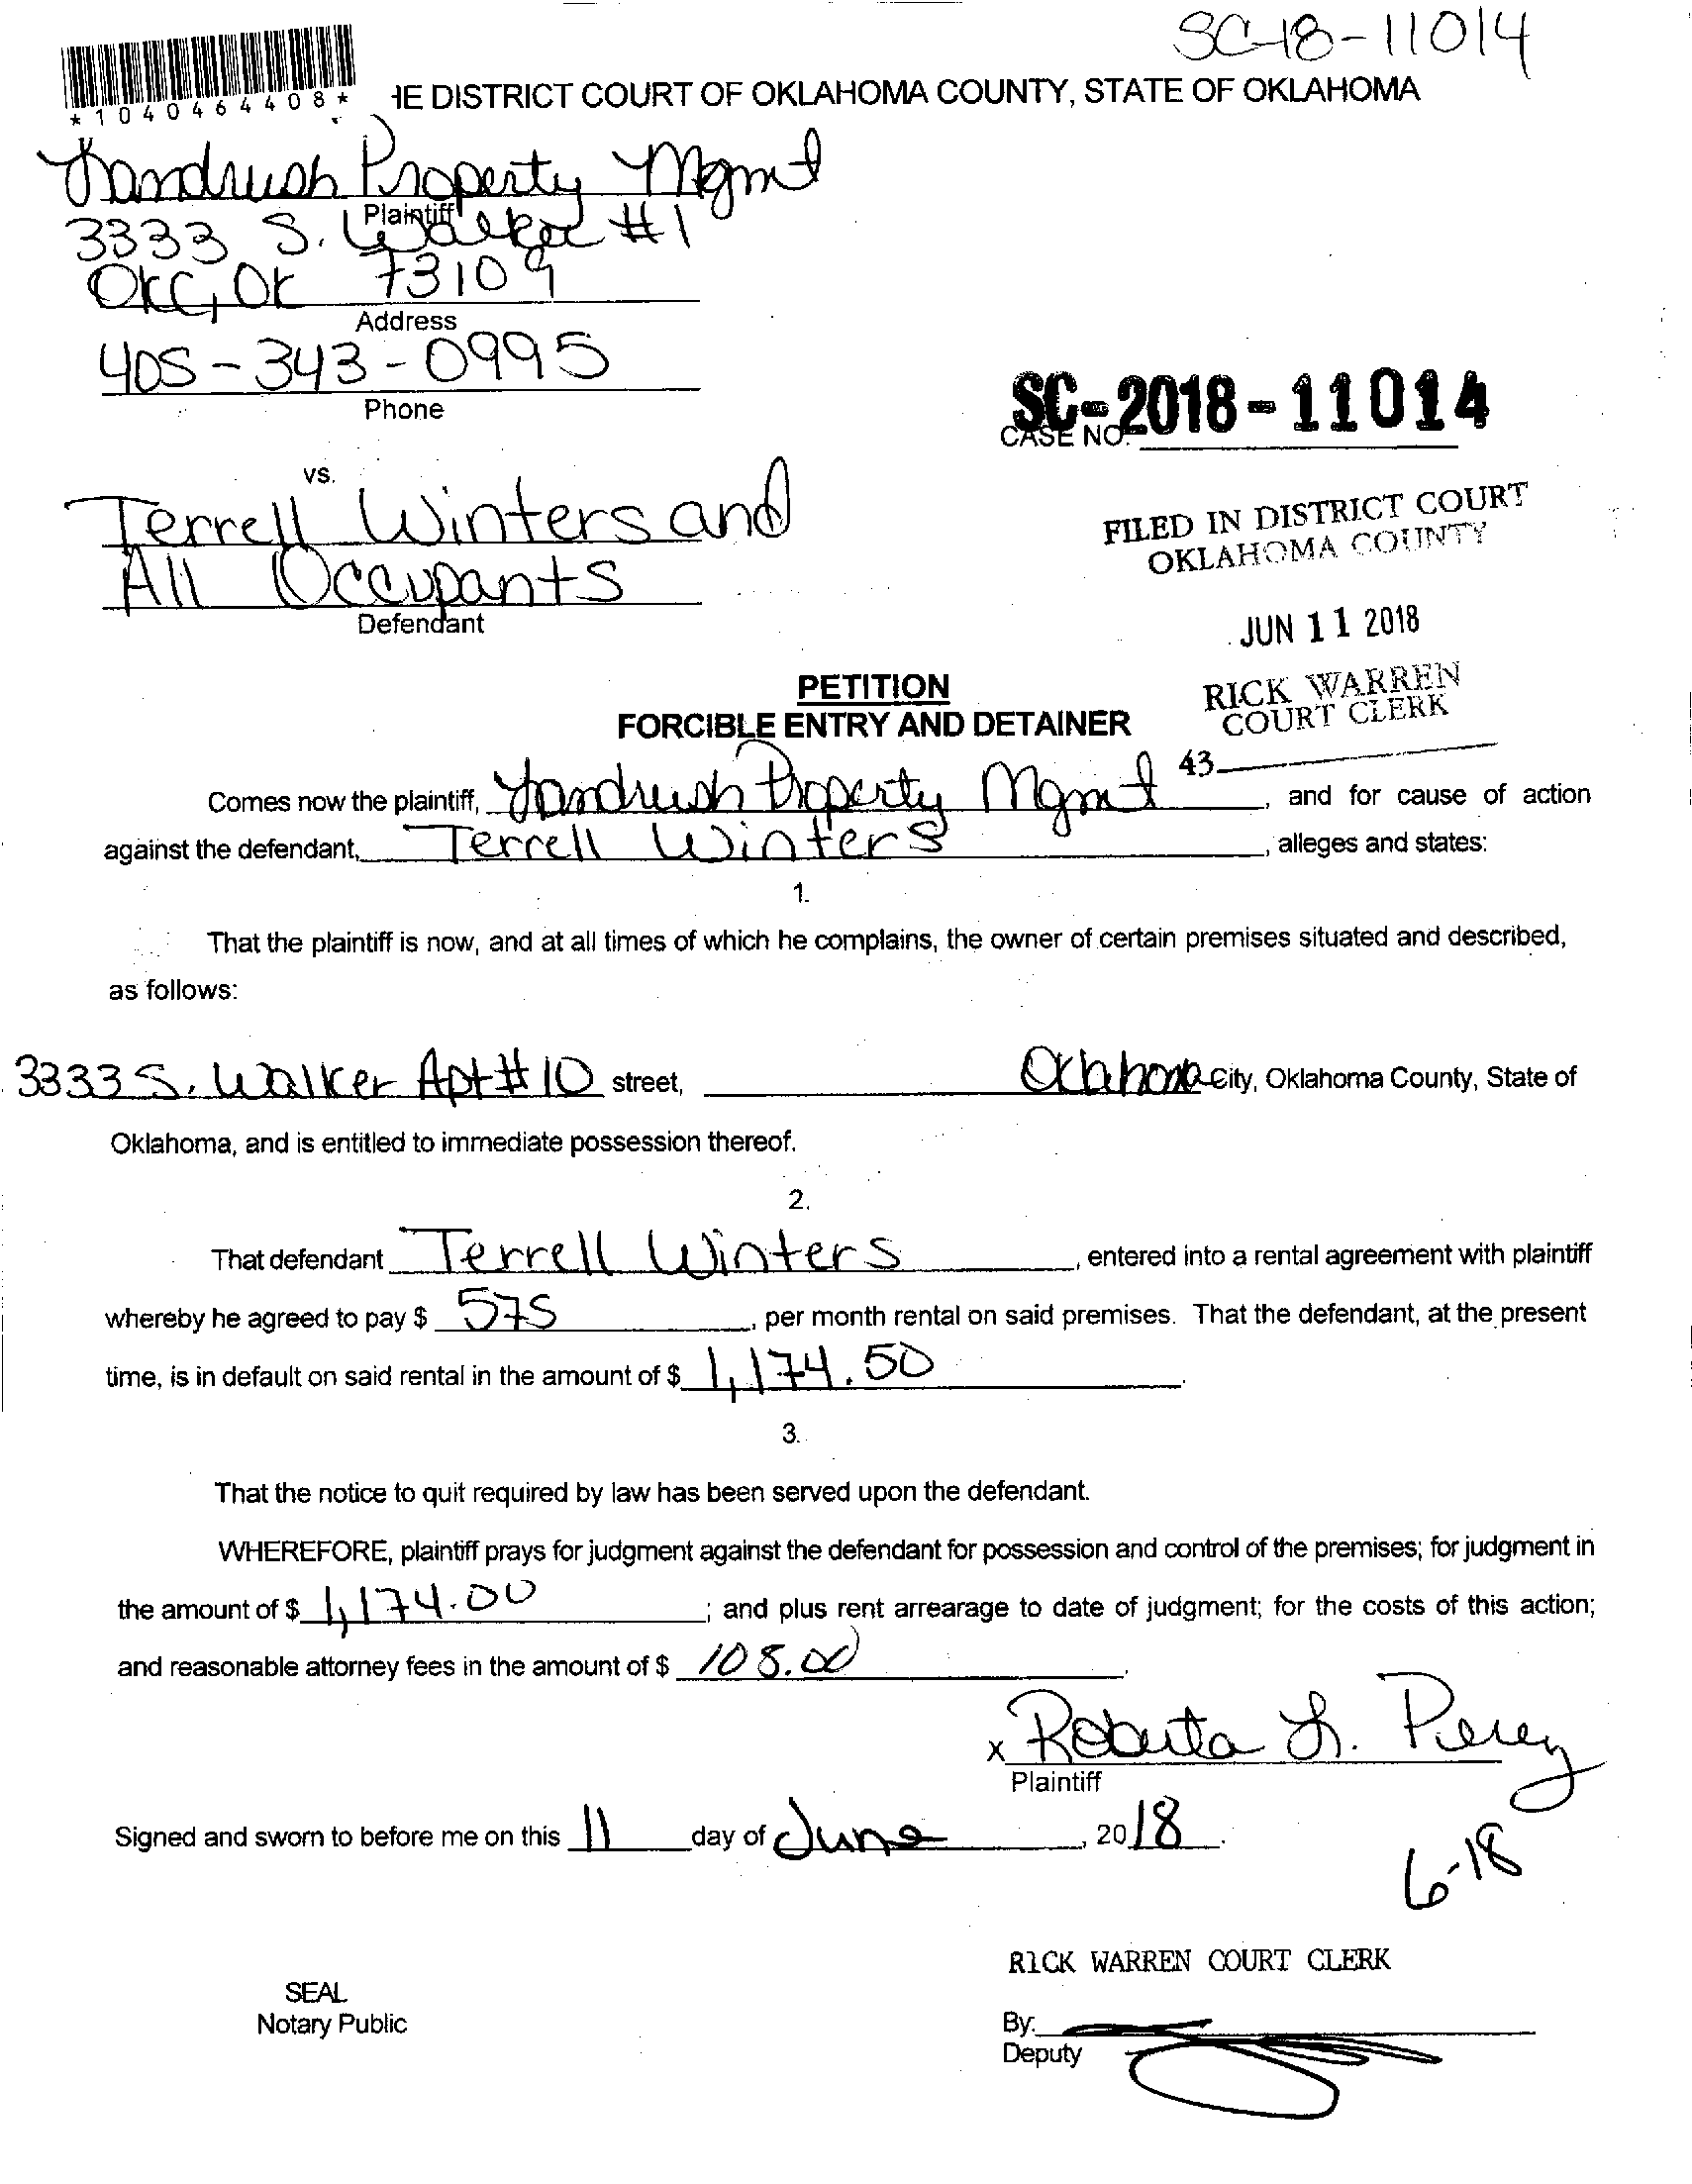 SC-18-11014
*1040464408*
HE DISTRICT COURT OF OKLAHOMA COUNTY, STATE OF OKLAHOMA
Landrush Property Mgmt
Plaintiff
3333 S. Walker #1
OKC, OK 73109
Address
405-343-0995
Phone
SC-2018-11014
CASE NO.
vs.
Terrell Winters and
All Occupants
Defendant
FILED IN DISTRICT COURT
OKLAHOMA COUNTY
JUN 11 2018
RICK WARREN
COURT CLERK
43
PETITION
FORCIBLE ENTRY AND DETAINER
Comes now the plaintiff, Landrush Property Mgmt, and for cause of action
against the defendant, Terrell Winters, alleges and states:
1.
That the plaintiff is now, and at all times of which he complains, the owner of certain premises situated and described,
as follows:
3333 S. Walker Apt #10 street, Oklahoma City, Oklahoma County, State of
Oklahoma, and is entitled to immediate possession thereof.
2.
That defendant Terrell Winters, entered into a rental agreement with plaintiff
whereby he agreed to pay $ 575, per month rental on said premises. That the defendant, at the present
time, is in default on said rental in the amount of $ 1,174.50.
3.
That the notice to quit required by law has been served upon the defendant.
WHEREFORE, plaintiff prays for judgment against the defendant for possession and control of the premises; for judgment in
the amount of $ 1,174.00; and plus rent arrearage to date of judgment; for the costs of this action;
and reasonable attorney fees in the amount of $ 108.00.
x Roberta L. Perez
Plaintiff
Signed and sworn to before me on this 11 day of June, 2018.
6-18
RICK WARREN COURT CLERK
SEAL
Notary Public
By:
Deputy